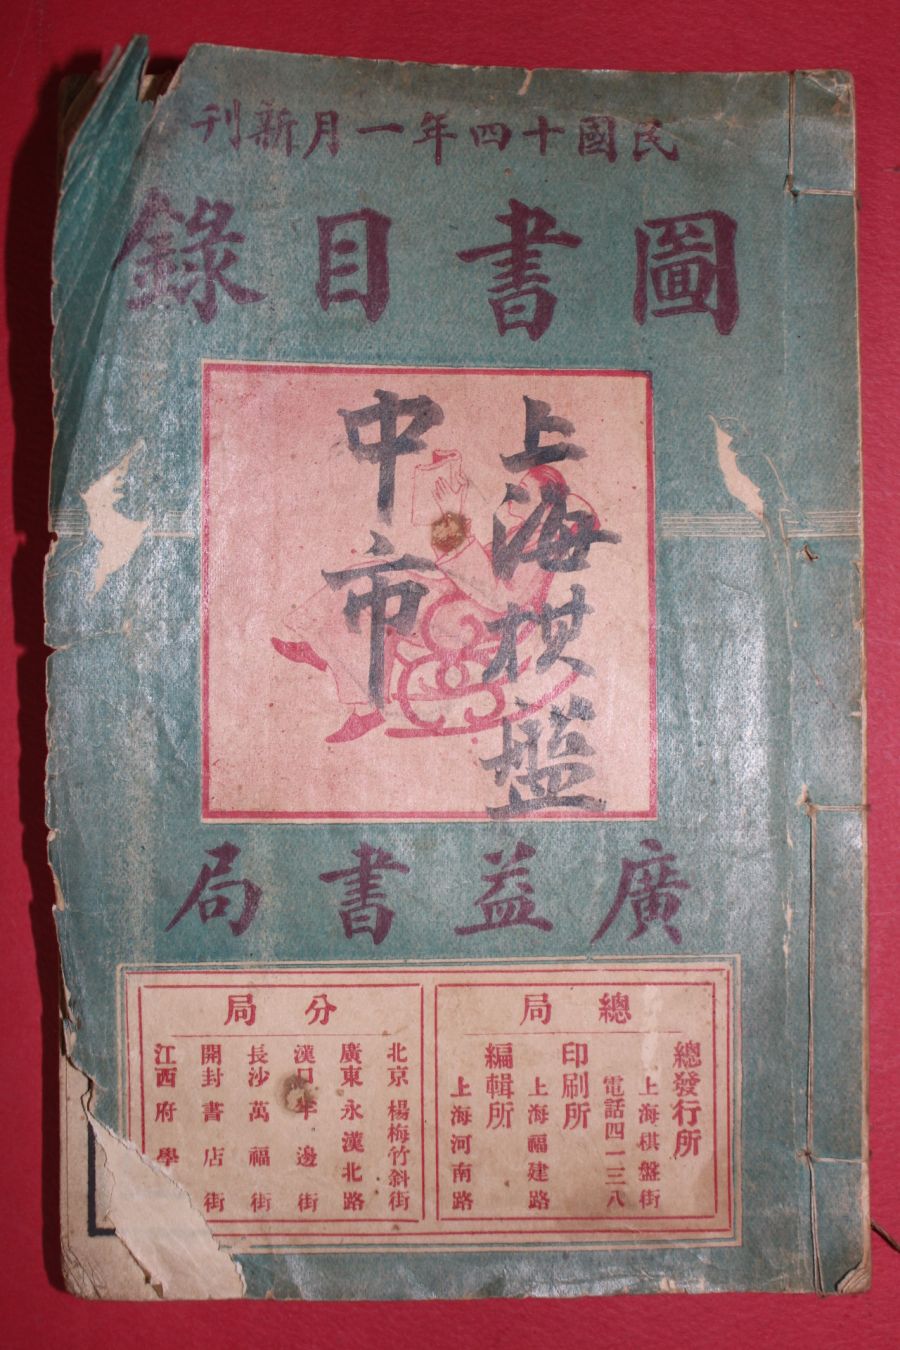 民國十四年一月新刊
圖書目錄
上海棋盤
中市
廣益書局
總局
總發行所
上海棋盤街
電話四一三八
印刷所
上海福建路
編輯所
上海河南路
分局
北京楊梅竹斜街
廣東永漢北路
漢口半邊街
長沙萬福街
開封書店街
江西府學